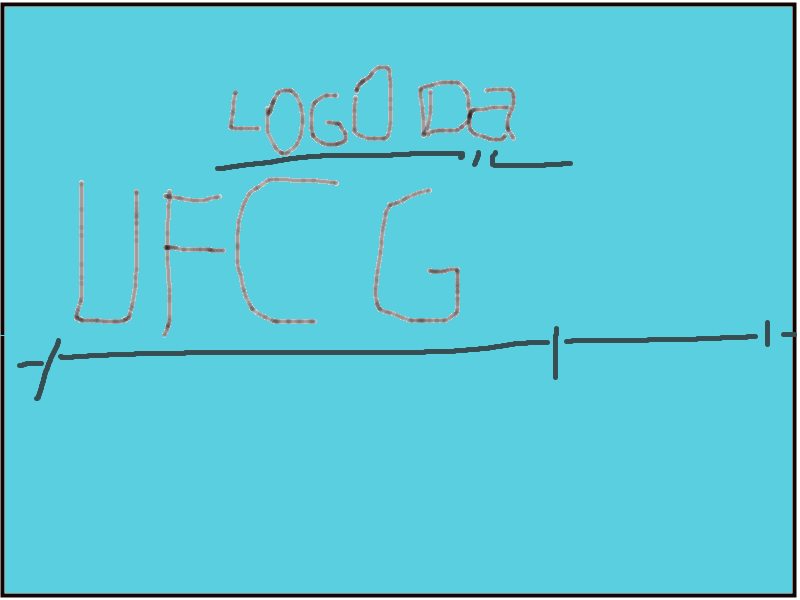 LOGO Da
UFCG